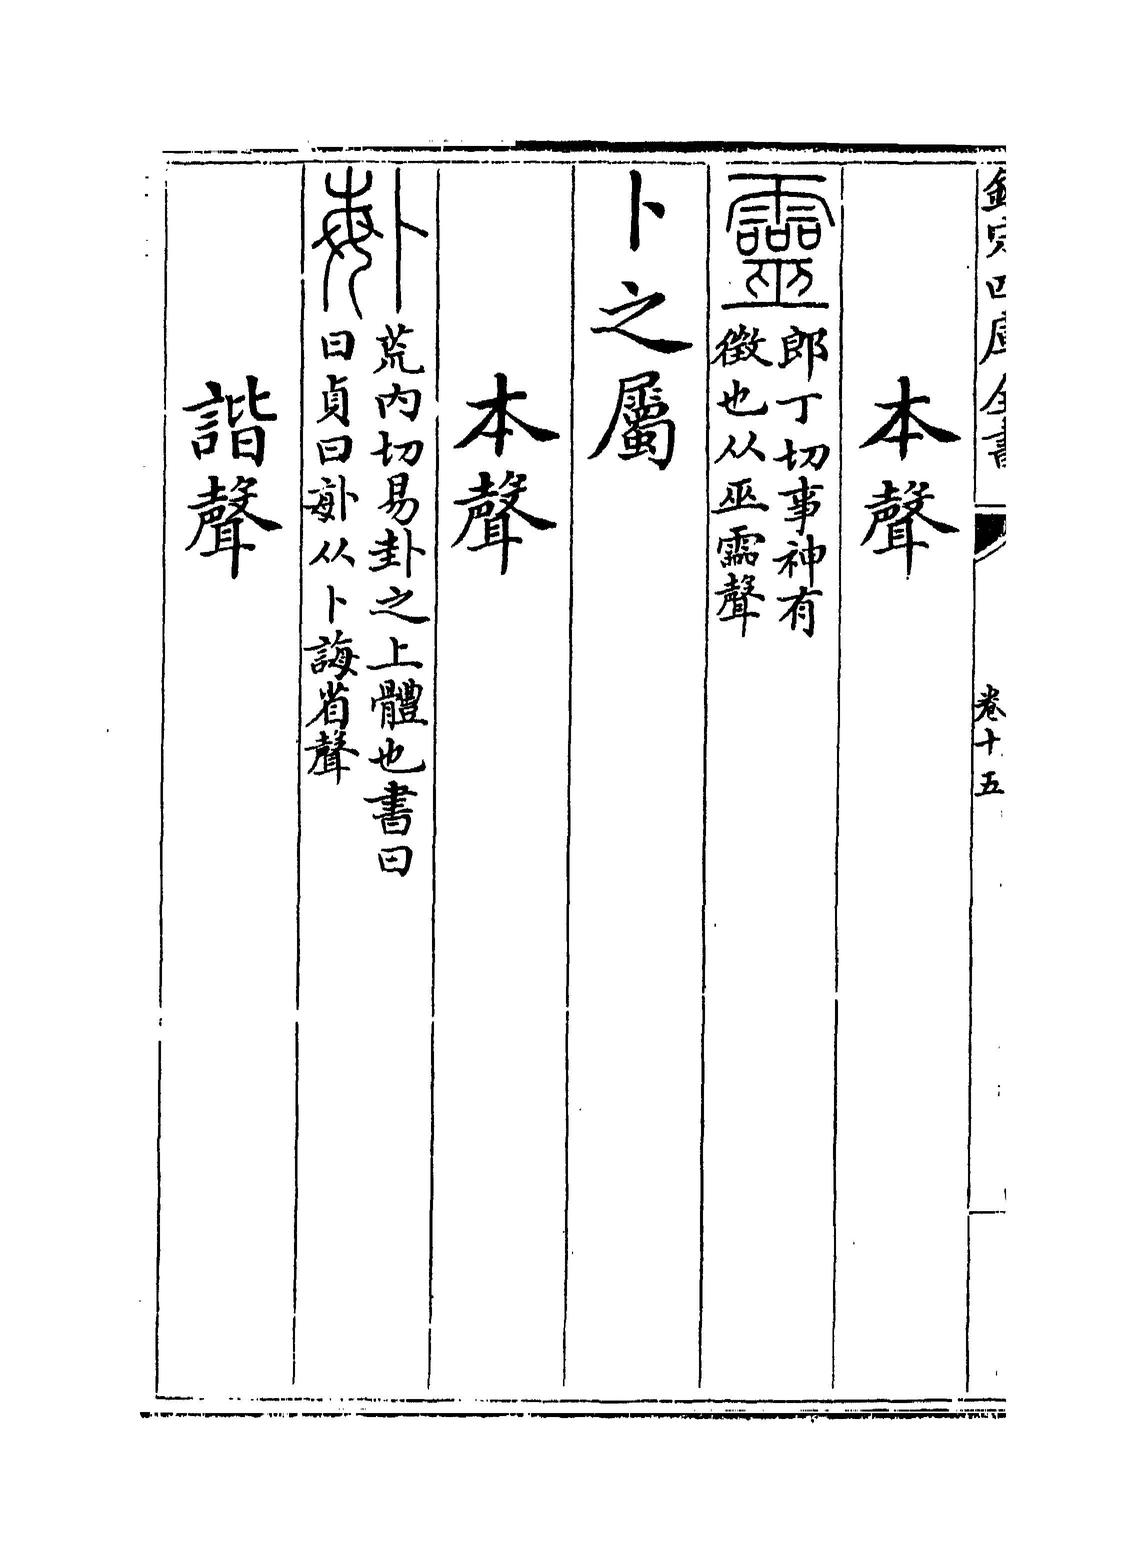 欽定四庫全書
卷十五
本聲
靈
郎丁切事神有
徵也从巫霝聲
卜之屬
本聲
𠧩
荒内切易卦之上體也書曰
曰貞曰𠧩从卜誨省聲
諧聲